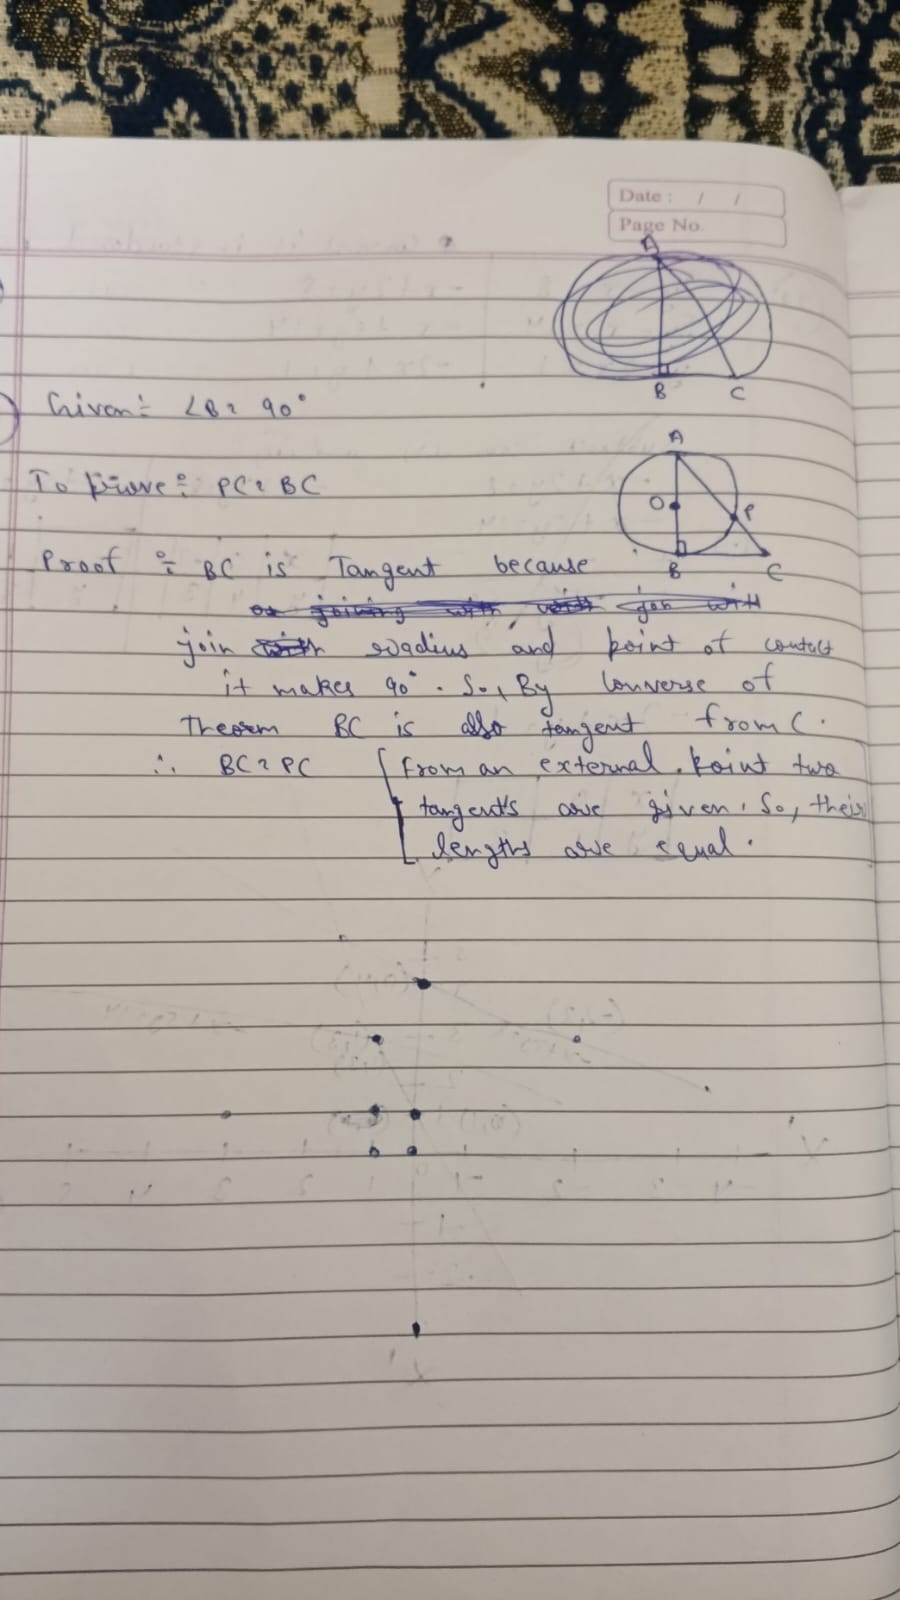 Date : / /
Page No.
A
B C
Given :- ∠B = 90°
A
To prove :- PC = BC
O P
Proof :- BC is Tangent because
B C
join radius and point of contact
it makes 90°. So, By converse of
Theorem BC is also tangent from C.
∴ BC = PC [from an external point two
tangent's are given. So, their
lengths are equal.